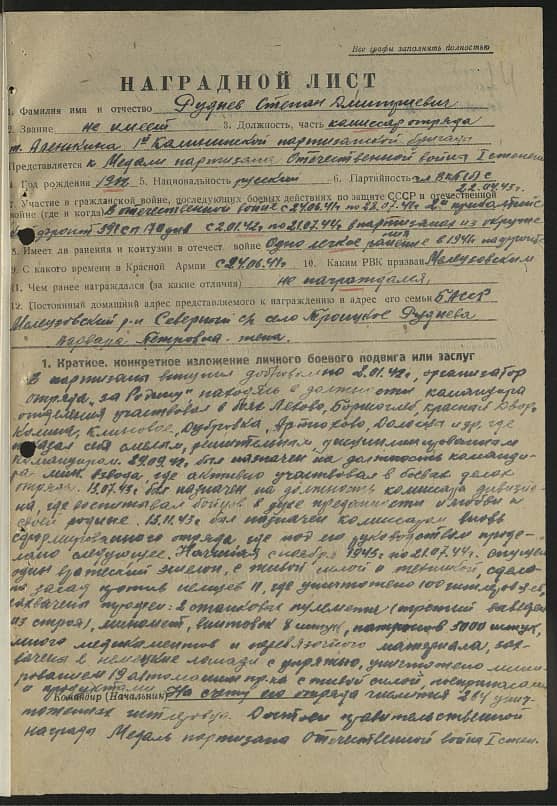 Все графы заполнять полностью
НАГРАДНОЙ ЛИСТ
1. Фамилия имя и отчество Руднев Степан Дмитриевич
2. Звание не имеет 3. Должность, часть комиссар отряда
т. Аленкина 1й Калининской партизанской бригады
Представляется к Медали партизана Отечественной войны I степени
4. Год рождения 5. Национальность русский 6. Партийность чл ВКП(б) с
22.04.43г.
7. Участие в гражданской войне, последующих боевых действиях по защите СССР и отечественной
войне (где и когда) В отечественной войне с 24.06.41г по
фронт с 2.01.42г по 21.07.44г в партизанах
8. Имеет ли ранения и контузии в отечест. войне Одно легкое ранение в 1941г
9. С какого времени в Красной Армии с 24.06.41г 10. Каким РВК призван Мелеузовским
11. Чем ранее награждался (за какие отличия) не награждался.
12. Постоянный домашний адрес представляемого к награждению и адрес его семьи БАССР
Мелеузовский р-н Северный с/с село Троицкое Руднева
Варвара Петровна - жена.
1. Краткое, конкретное изложение личного боевого подвига или заслуг
В партизаны вступил добровольно 2.01.42г, организатор
отряда „за Родину" находясь в должности командира
отделения участвовал в боях Ляхово, Борисоглеб, красный Двор,
Дубровка, Артюхово, и др, где
показал себя смелым, решительным, дисциплинированным
командиром. 29.09.42г был назначен на должность команди-
ра взвода, где активно участвовал в боевых делах
отряда. 13.07.43г был назначен на должность комиссара
на, где воспитывал бойцов в духе преданности и любви к
своей родине. 15.11.43г был назначен комиссаром вновь
сформированного отряда, где под его руководством проде-
лано следующее. Начиная с ноября 1943г по 21.07.44г. спущен
один вражеский эшелон, с живой силой и техникой, сдела-
но засад против немцев 11, где уничтожено 100 гитлеровцев,
захвачены трофеи: 2 станковых пулемета (третий выведен
из строя), миномет, винтовок 8 штук, патронов 5000 штук,
много медикаментов и перевязочного материала, зах-
вачена немецкие лошади с упряжью, уничтожено мини-
рованием 19 автомашин пр-ка с живой силой,
и продуктами. На счету его отряда числится 284 унич-
Командир (Начальник)
тоженных гитлеровца. Достоин правительственной
награды Медаль партизана Отечественной войны I степ.